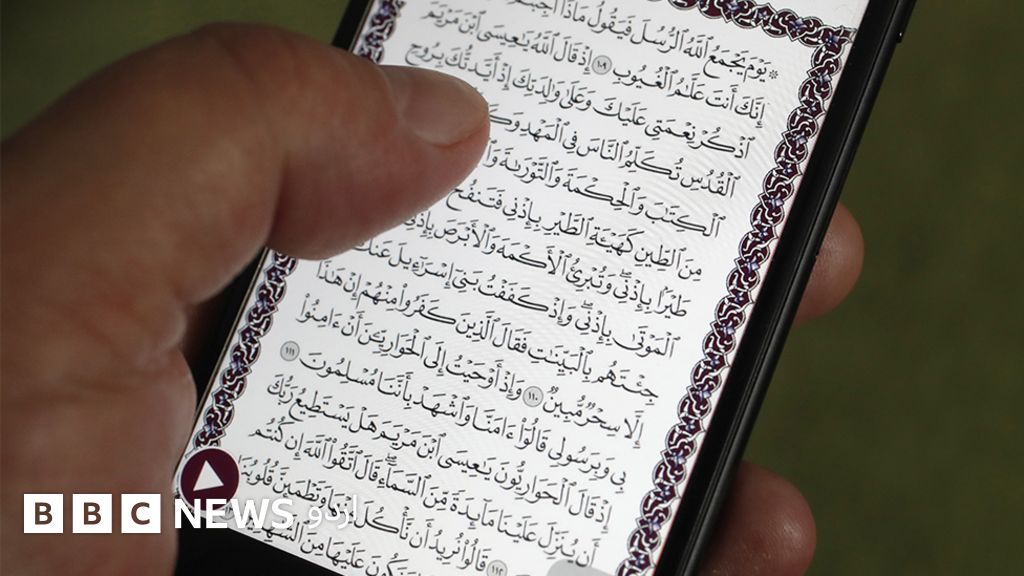 ۞ يَوْمَ يَجْمَعُ ٱللَّهُ ٱلرُّسُلَ فَيَقُولُ مَاذَآ
إِنَّكَ أَنتَ عَلَّـٰمُ ٱلْغُيُوبِ ١٠٩ إِذْ قَالَ ٱللَّهُ يَـٰعِيسَى ٱبْنَ مَرْيَمَ
ٱذْكُرْ نِعْمَتِى عَلَيْكَ وَعَلَىٰ وَٰلِدَتِكَ إِذْ أَيَّدتُّكَ بِرُوحِ
ٱلْقُدُسِ تُكَلِّمُ ٱلنَّاسَ فِى ٱلْمَهْدِ
ٱلْكِتَـٰبَ وَٱلْحِكْمَةَ وَٱلتَّوْرَىٰةَ
مِنَ ٱلطِّينِ كَهَيْـَٔةِ ٱلطَّيْرِ بِإِذْنِى فَتَنفُخُ
طَيْرًۢا بِإِذْنِى وَتُبْرِئُ ٱلْأَكْمَهَ وَٱلْأَبْرَصَ بِإِذْنِى
ٱلْمَوْتَىٰ بِإِذْنِى وَإِذْ كَفَفْتُ بَنِىٓ إِسْرَٰٓءِيلَ عَنكَ
جِئْتَهُم بِٱلْبَيِّنَـٰتِ فَقَالَ ٱلَّذِينَ كَفَرُوا۟ مِنْهُمْ إِنْ هَـٰذَآ
إِلَّا سِحْرٌ مُّبِينٌ ١١٠ وَإِذْ أَوْحَيْتُ إِلَى ٱلْحَوَارِيِّـۧنَ أَنْ ءَامِنُوا۟
بِى وَبِرَسُولِى قَالُوٓا۟ ءَامَنَّا وَٱشْهَدْ بِأَنَّنَا مُسْلِمُونَ ١١١
إِذْ قَالَ ٱلْحَوَارِيُّونَ يَـٰعِيسَى ٱبْنَ مَرْيَمَ هَلْ يَسْتَطِيعُ رَبُّكَ
أَن يُنَزِّلَ عَلَيْنَا مَآئِدَةً مِّنَ ٱلسَّمَآءِ قَالَ ٱتَّقُوا۟ ٱللَّهَ إِن كُنتُم
١١٢ قَالُوا۟ نُرِيدُ أَن نَّأْكُلَ مِنْهَا وَتَطْمَئِنَّ قُلُوبُنَا
عَلَيْهَا مِنَ
BBC NEWS اردو